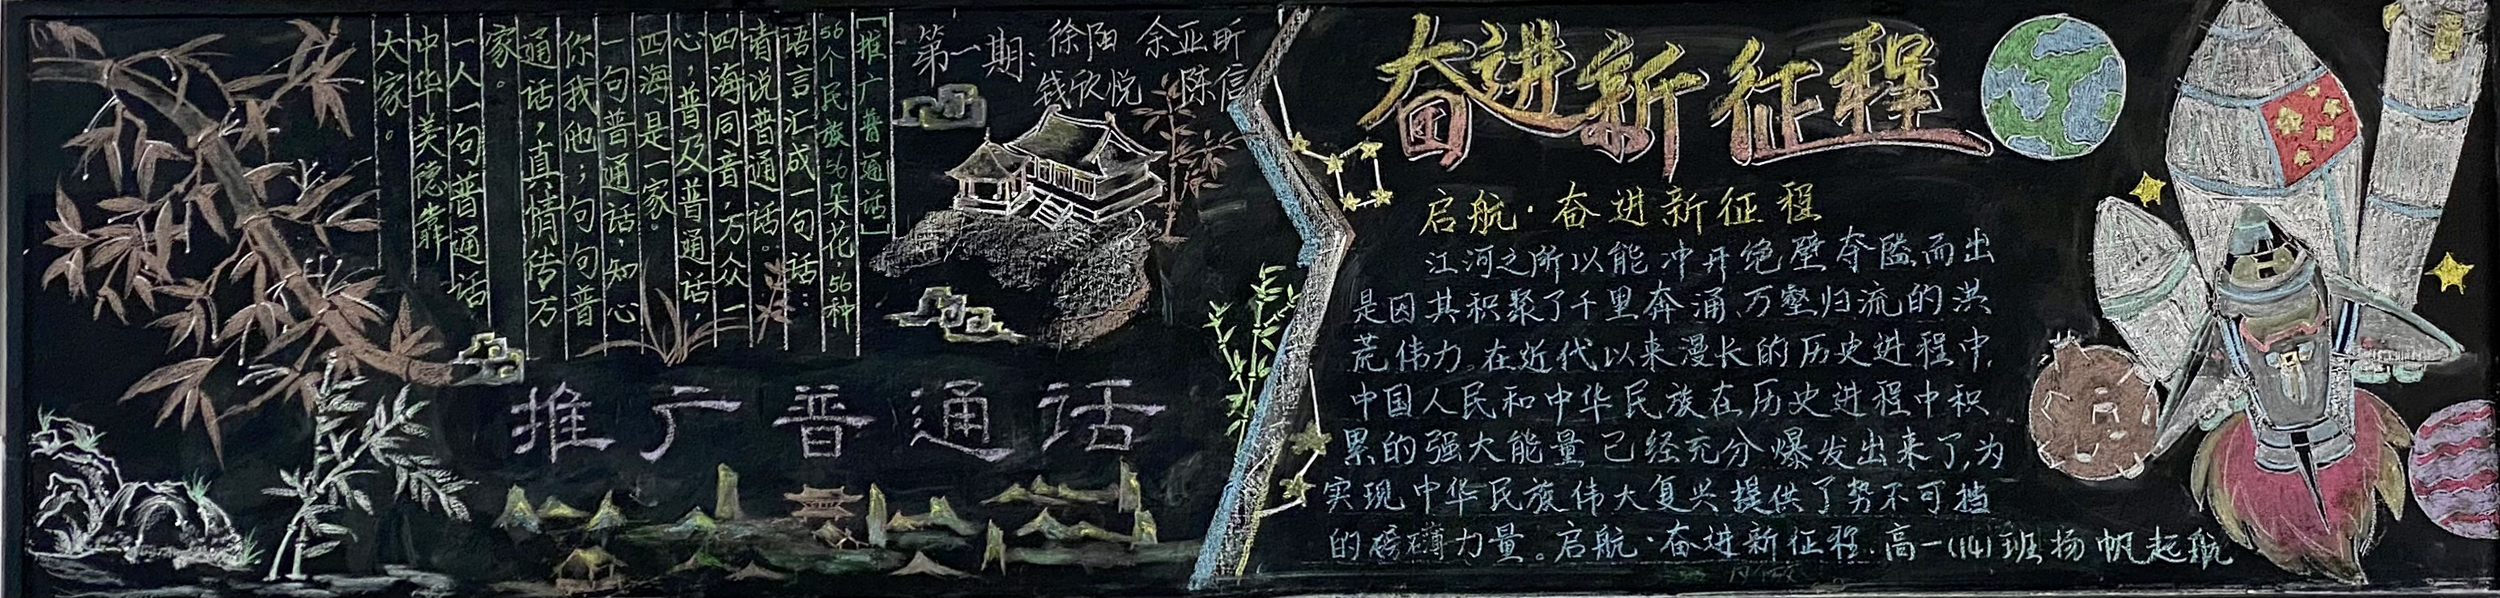 [推广普通话]
56个民族56朵花,56种
语言汇成一句话:
请说普通话。
四海同音,万众一
心,普及普通话,
四海是一家。
一句普通话,知心
你我他;句句普
通话,真情传万
家。
一人一句普通话,
中华美德靠
大家。
第一期:徐阳 余亚昕
钱欣悦 陈信
推广普通话
奋进新征程
启航·奋进新征程
江河之所以能冲开绝壁夺隘而出
是因其积聚了千里奔涌,万壑归流的洪
荒伟力。在近代以来漫长的历史进程中,
中国人民和中华民族在历史进程中积
累的强大能量已经充分爆发出来了,为
实现中华民族伟大复兴提供了势不可挡
的磅礴力量。启航·奋进新征程.高一(14)班扬帆起航